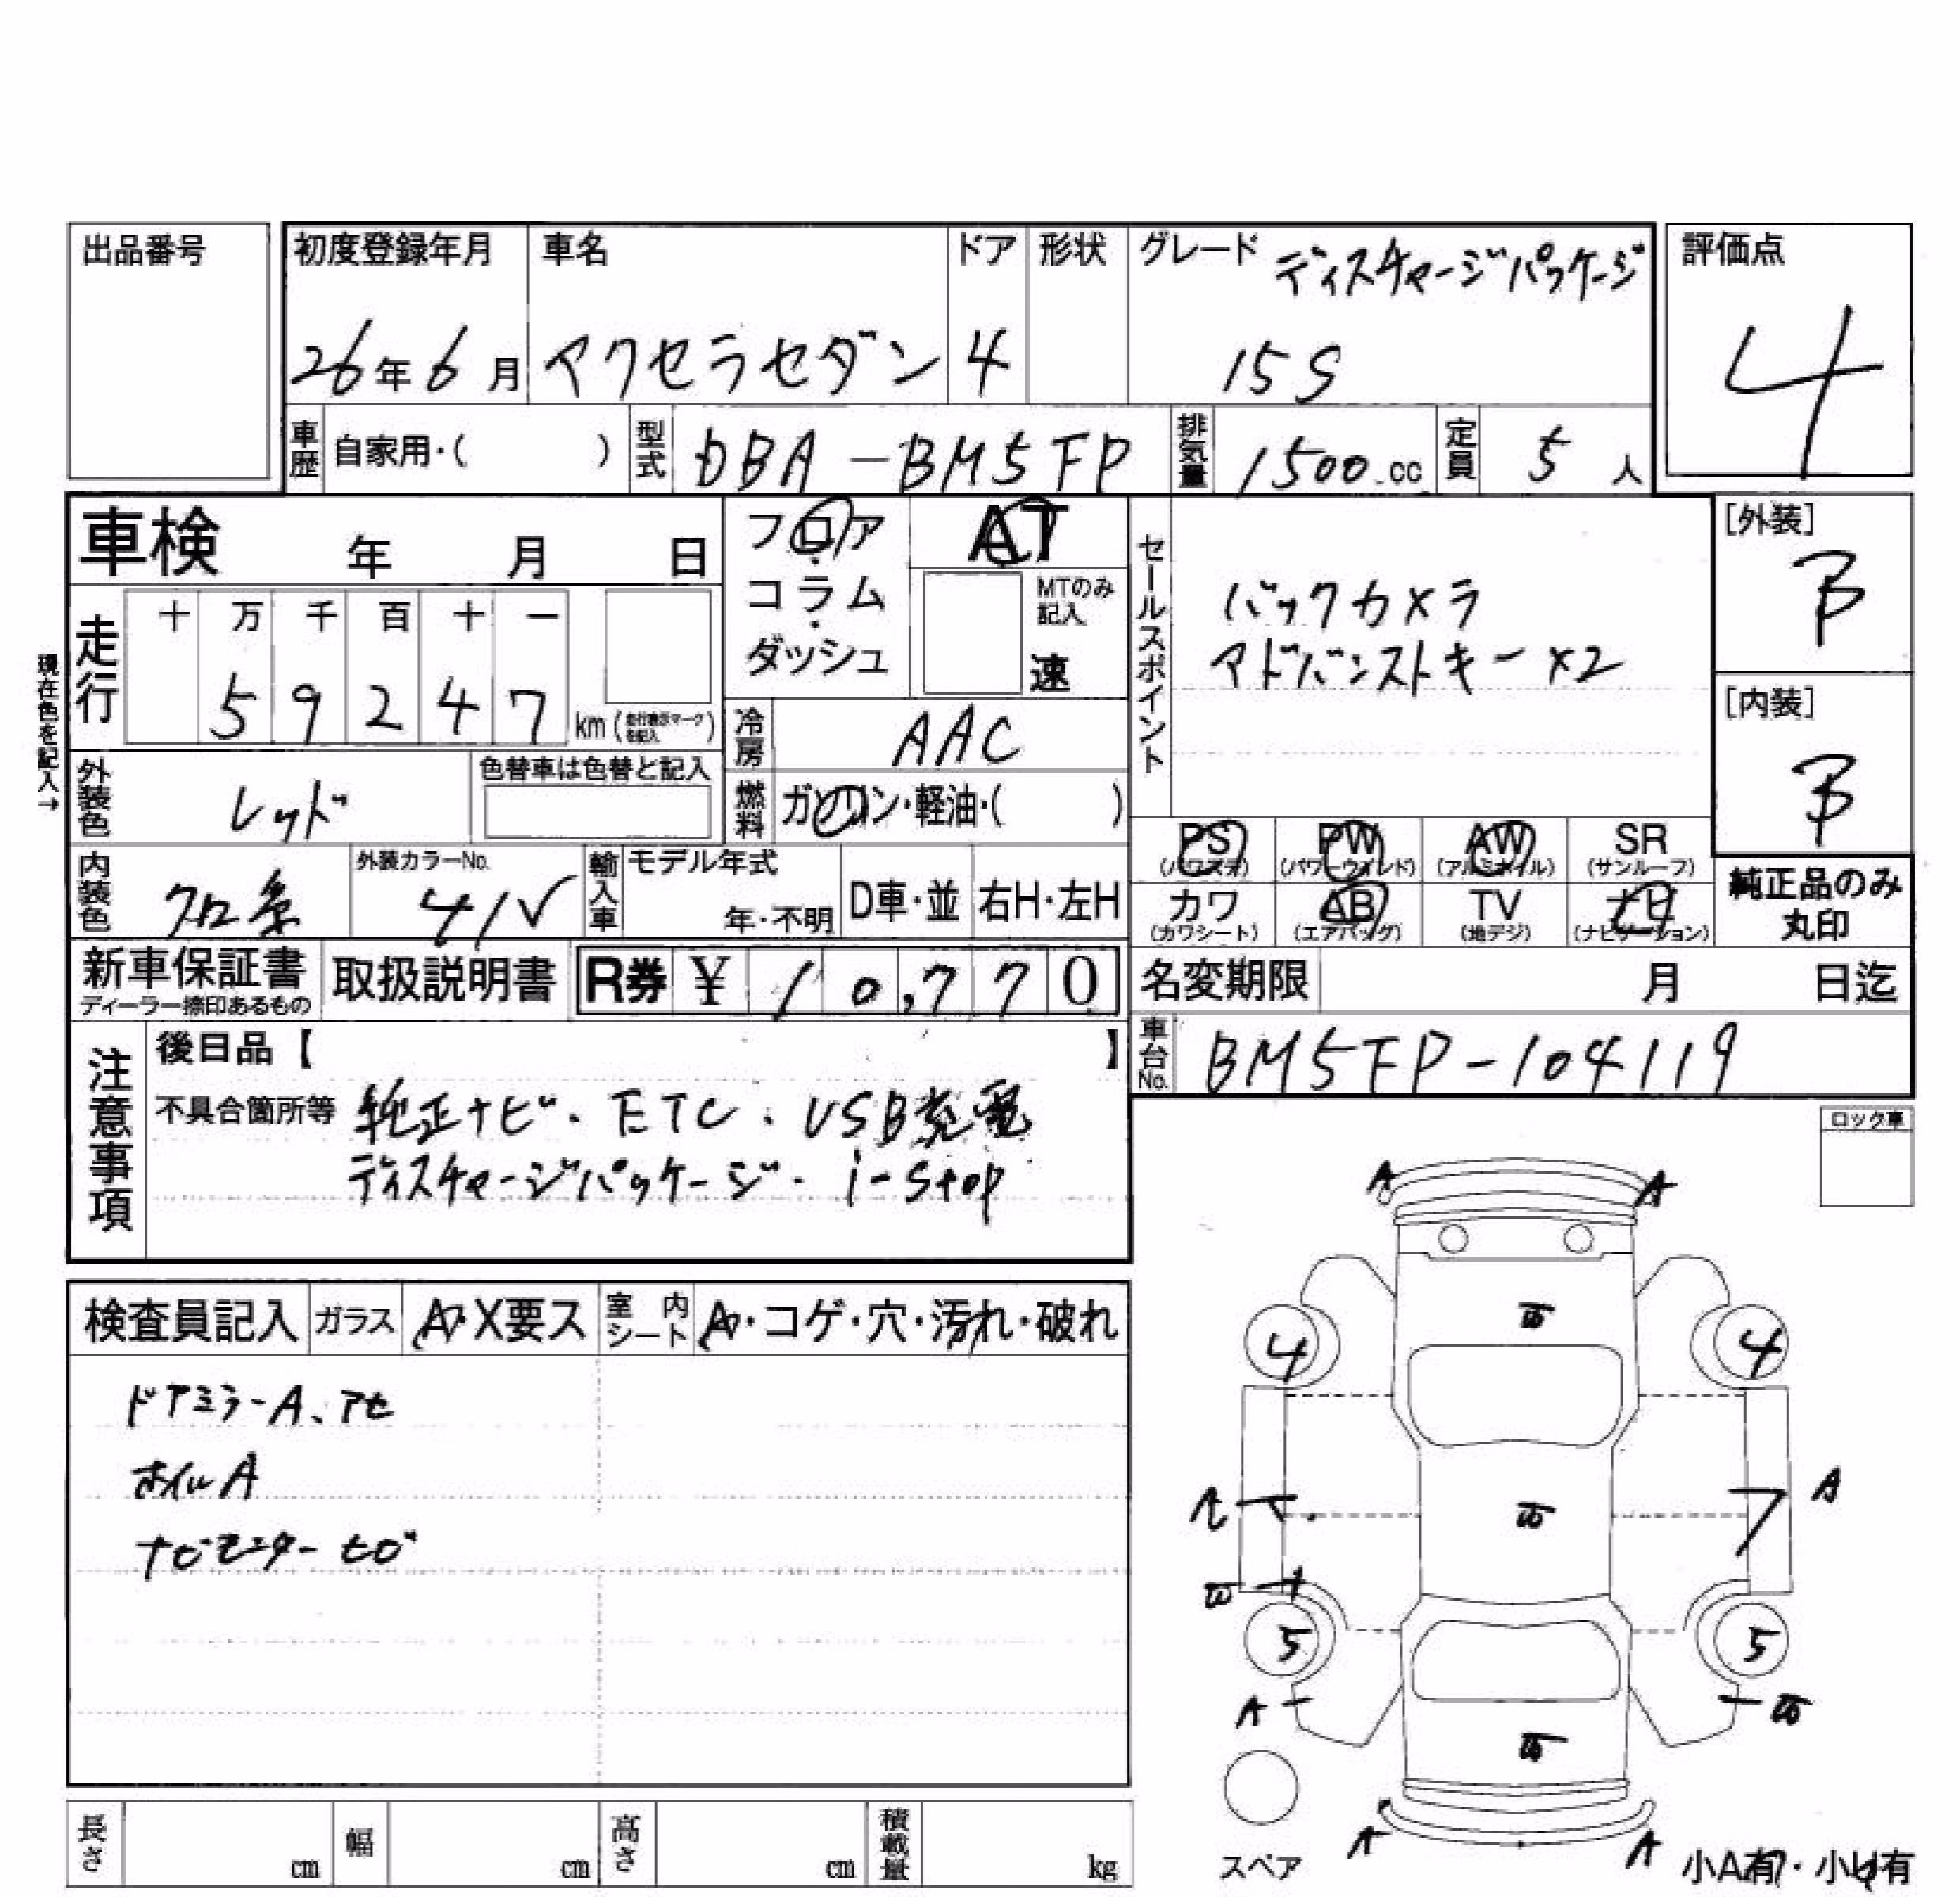 出品番号
初度登録年月 車名 ドア 形状 グレード ディスチャージパッケージ 評価点
26年6月 アクセラセダン 4 15S 4
車歴 自家用・( ) 型式 DBA-BM5FP 排気量 1500.cc 定員 5人
車検 年 月 日
フロア・コラム・ダッシュ
AT
MTのみ記入
速
セールスポイント
バックカメラ
アドバンストキー×2
[外装]
B
[内装]
B
走行 十 万 千 百 十 一
5 9 2 4 7 km
現在色を記入→
冷房 AAC
外装色 レッド 色替車は色替と記入
燃料 ガソリン・軽油・( )
内装色 クロ系 外装カラーNo. 41V 輸入車 モデル年式 年・不明 D車・並 右H・左H
PS (パワステ) PW (パワーウィンド) AW (アルミホイル) SR (サンルーフ)
カワ (カワシート) AB (エアバッグ) TV (地デジ) ナビ (ナビゲーション)
純正品のみ
丸印
新車保証書 ディーラー捺印あるもの 取扱説明書 R券 ¥ 10,770
名変期限 月 日迄
車台No. BM5FP-104119
注意事項
後日品【 】
不具合箇所等 純正ナビ・ETC・USB充電
ディスチャージパッケージ・i-stop
ロック車
検査員記入 ガラス A・X要ス 室内シート A・コゲ・穴・汚れ・破れ
ドアミラーA、アセ
ホイルA
ナビモニターヒビ
A A
4 4
A
5 5
A
A A
スペア
小A有・小U有
長さ cm 幅 cm 高さ cm 積載量 kg